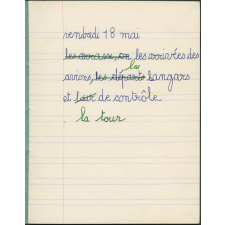 vendredi 18 mai
les morasse, on les arrivées des
les
avions, les départs hangars
et tour de contrôle
la tour